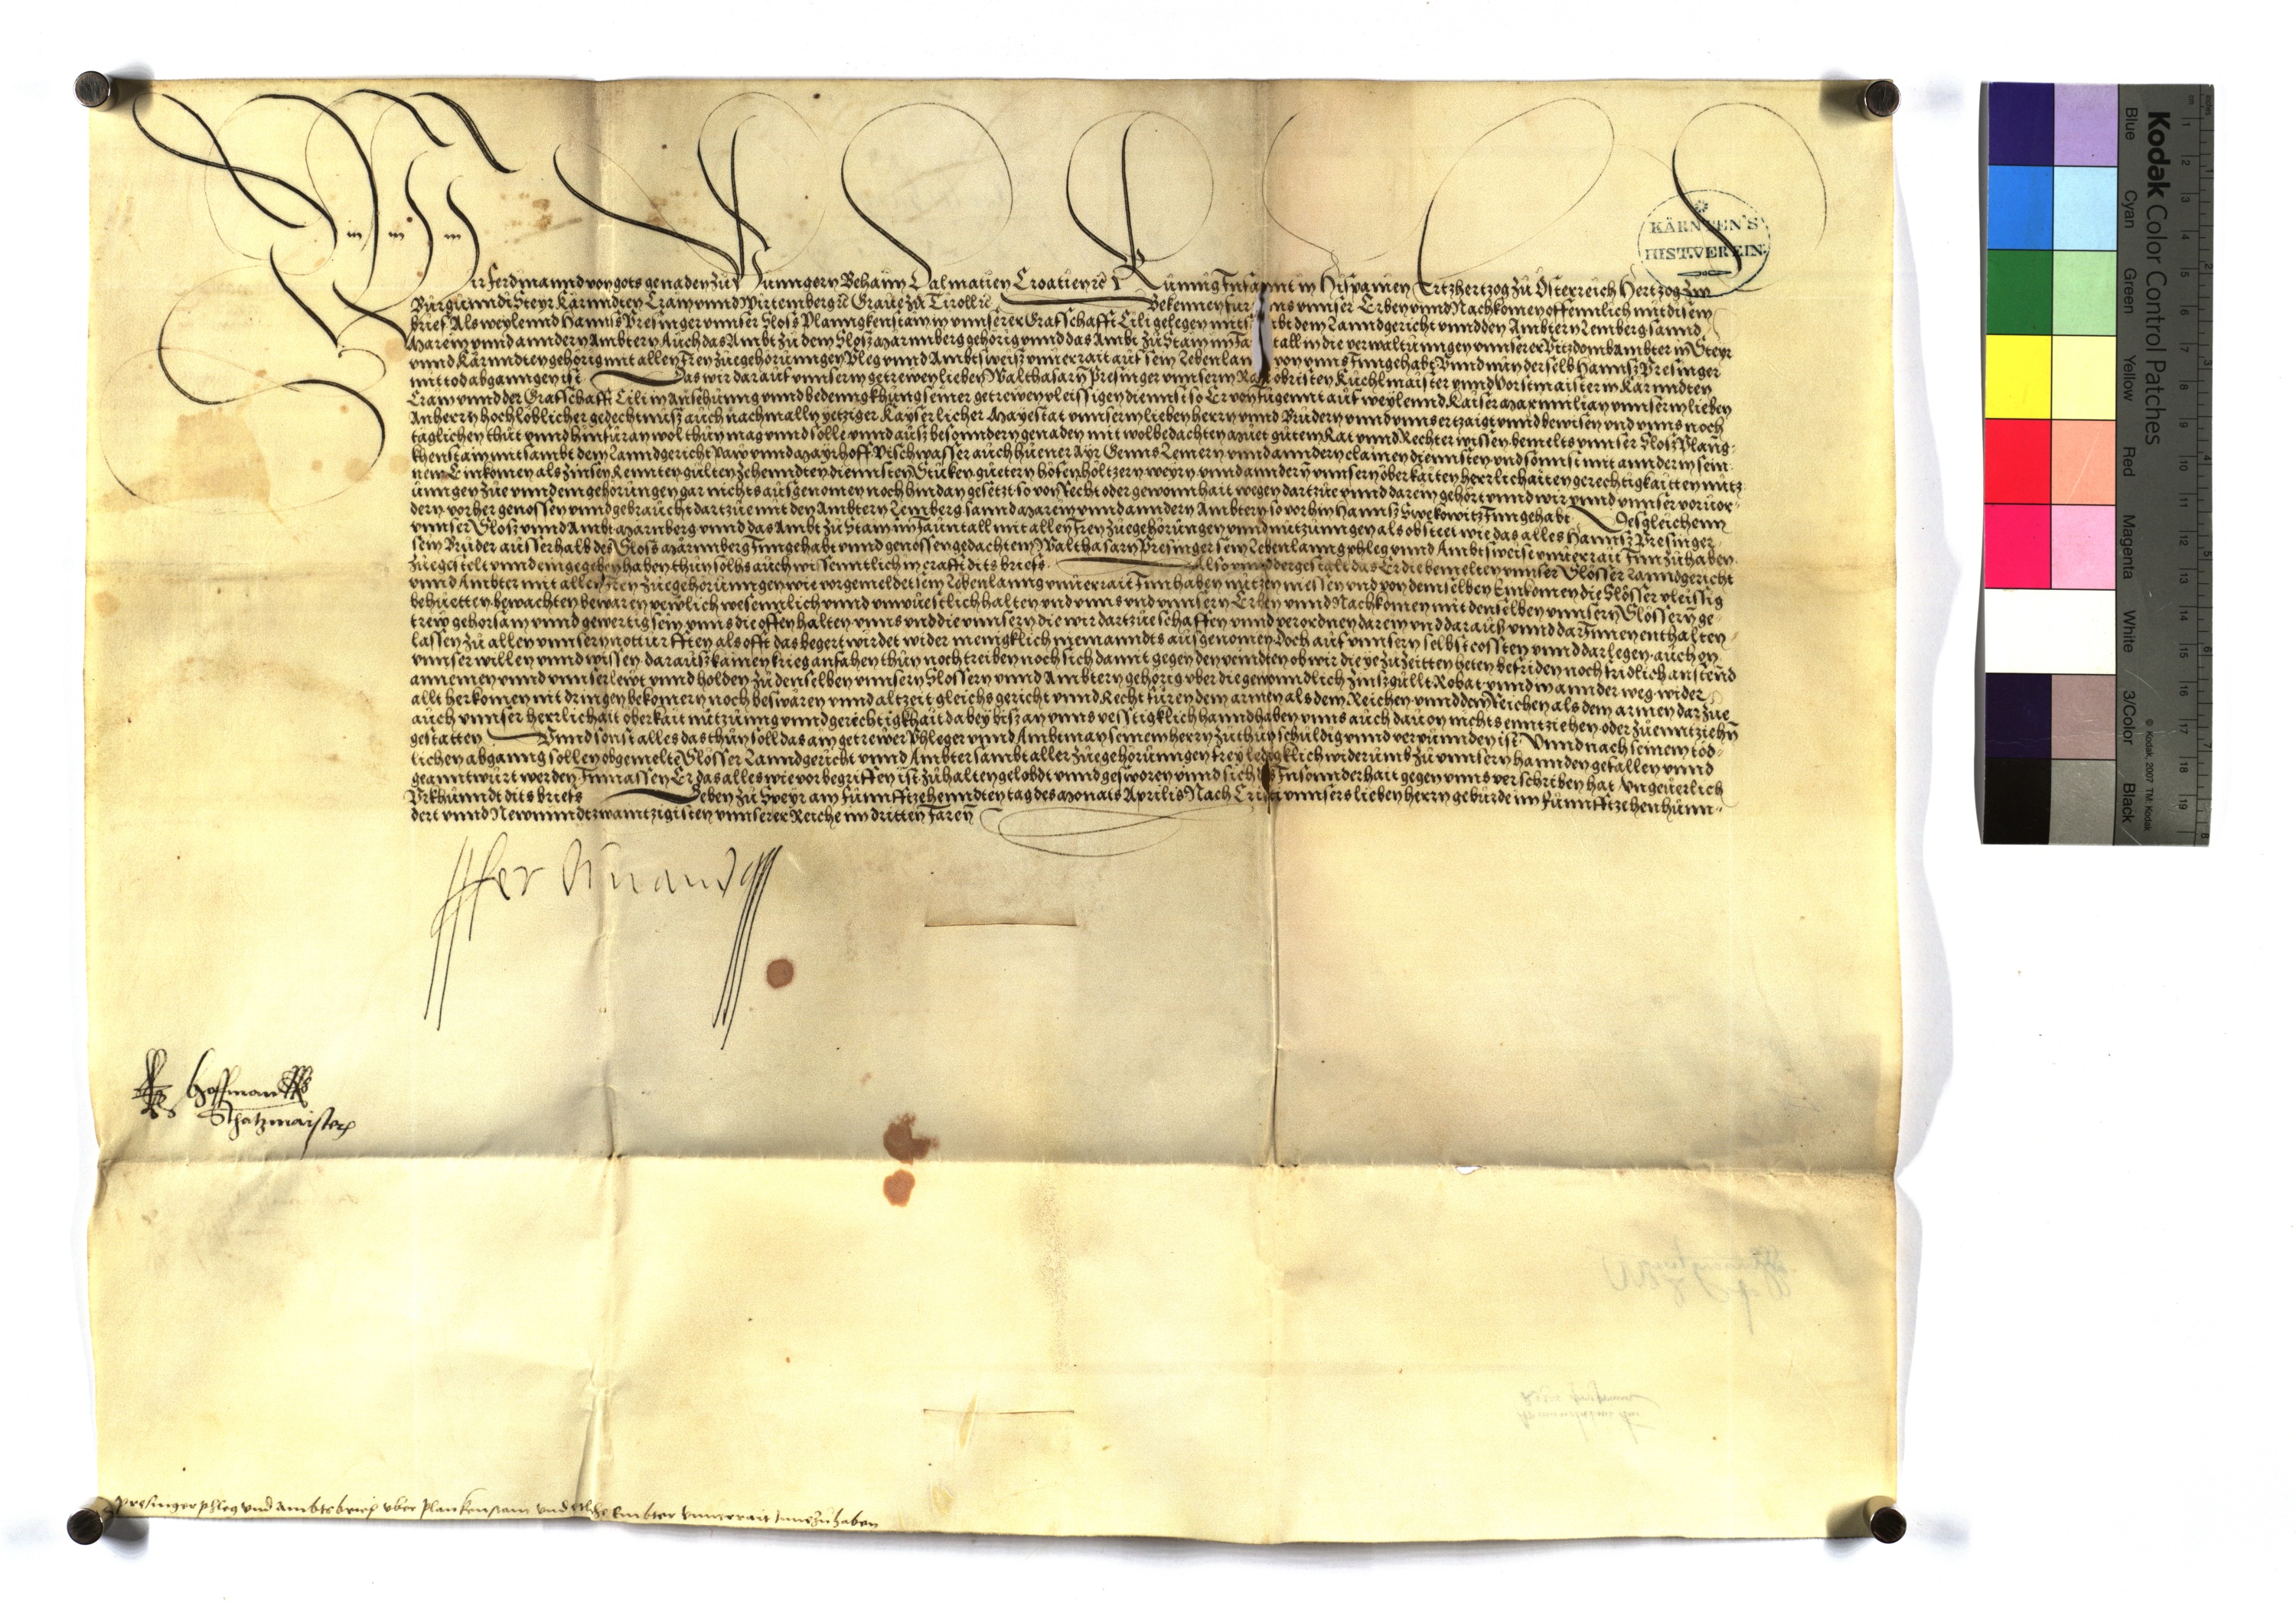 Wir Ferdinannd von gots genaden zu Hunngern Behaim Dalmatien Croatien rc Kunnig Infannt in Hispanien Ertzhertzog zu Osterreich Hertzog zu
Burgunndi Steyr Kärnndten Crain vnnd Wirtemberg rc Graue zu Tiroll rc Bekennen fur vnns vnnser Erben vnnd Nachkomen offennlich mit disem
brief Als weylennd Hanns Presinger vnnser Sloss Planngkenstain in vnnserer Grafschafft Cili gelegen mitsambt dem Lanndgericht vnnd den Ambtern Lemberg sannd
Marein vnnd anndern Ambtern Auch das Ambt zu dem Slosz Marnnberg gehorig vnnd das Ambt zu Stain im Jauntall in die verwaltungen vnnserer Vitzdombambter in Steyr
vnnd Kärnndten gehorig mit allen Iren zuegehorungen Phleg vnnd Ambtsweisz vnuerrait auf sein Lebenlang von vnns Inngehabt Vnnd nun derselb Hannsz Presinger
mit tod abganngen ist Das wir darauf vnnserm getrewen lieben Walthasarn Presinger vnnserm Rat obristen Kuchlmaister vnnd Vorstmaister in Kärnndten
Crain vnnd der Grafschafft Cili in Ansehung vnnd bedenngkhung seiner getrewen vleissigen diennst so Er von Jugennt auf weylennd Kaiser Maximilian vnnserm lieben
Anherrn hochloblicher gedechtnusz auch nachmalln yetziger Kayserlicher Mayestat vnnserm lieben herrn vnnd Brudern vnnd vnns ertzaigt vnnd bewisen vnd vnns noch
täglichen thut vnnd hinfuran wol thun mag vnnd solle vnnd ausz besonndern genaden mit wolbedachtem Muet gutem Rat vnnd Rechter wissen bemelts vnnser Slosz Planng-
khenstain mitsambt dem Lanndgericht Paw vnnd Mayrhoff Vischwasser auch huener Ayr Genns Lemern vnnd anndern clainen diennsten vnd sonnst mit anndern sein-
nem Einkomen als zinsen Rennten gulten zehenndten diennsten Stuken guetern hofen holtzern weyrn vnnd anndern vnnsern oberkaiten herrlichaiten gerechtigkaitten nutz-
ungen zue vnnd eingehorungen gar nichts ausgenomen noch hindan gesetzt so von Recht oder gewonnhait wegen dartzue vnnd darein gehört vnnd wir vnnd vnnser voruor-
dern vorher genossen vnnd gebraucht dartzue mit den Ambtern Lemberg sannd Marein vnnd anndern Ambtern so vorhin Hannsz Swekowitz Inngehabt Desgleichenn
vnnser Slosz vnnd Ambt Marnberg vnnd das Ambt zu Stain im Jauntall mit allen Iren zuegehorungen vnnd nutzungen als obsteet wie das alles Hannsz Presinger
sein Bruder ausserhalb des Sloss Marnnberg Inngehabt vnnd genossen gedachtem Walthasarn Presinger sein Lebenlanng phleg vnnd Ambtsweise vnuerrait Innzuhaben
zuegestelt vnnd eingegeben haben thun solhs auch wissenntlich in crafft dits briefs Also vnnd dergestalt das Er die bemelten vnnser Slosser Lanndgericht
vnnd Ambter mit allen Iren zuegehorungen wie vorgemeldet sein Lebenlanng vnuerrait Innhaben nutzen niessen vnd von demselben Einkomen die Slosser vleissig
behuetten bewachten bewaren pewlich wesennlich vnnd vnwuestlich halten vnd vnns vnd vnnsern Erben vnnd Nachkomen mit denselben vnnsern Slossern ge-
trew gehorsam vnnd gewertig sein vnns die offen halten vnns vnd die vnnsern die wir dartzue schaffen vnnd verordnen darein vnd daraus vnnd darInnen enthalten
lassen zu allen vnnsern notturfften als offt das begert wirdet wider menigklich niemanndts ausgenomen Doch auf vnnsern selbst cossten vnnd darlegen auch on
vnnser willen vnnd wissen darausz kainen krieg anfahen thun noch treiben noch sich damit gegen den veindten ob wir die ye zu zeitten heten befriden noch fridlich anstennd
annemen vnnd vnnser lewt vnnd holden zu denselben vnnsern Slossern vnnd Ambtern gehorig vber die gewonndlich zinsz gullt Robat vnnd wannder weg wider
allt herkomen nit dringen bekomern noch beswaren vnnd altzeit gleichs gericht vnnd Recht furen dem armen als dem Reichen vnnd dem Reichen als dem armen dar zue
auch vnnser herrlichait oberkait nutzung vnnd gerechtigkhait dabey bisz an vnns vesstigklich hanndhaben vnns auch dauon nichts enntziehen oder zu enntziehn
gestatten Vnnd sonst alles das thun soll das ain getrewer Phleger vnnd Ambtman seinem herrn zu thun schuldig vnnd verpunnden ist Vnnd nach seinem tod-
lichen abganng sollen obgemelte Slosser Lanndgericht vnnd Ambter sambt aller zuegehorungen frey ledigklich widerumb zu vnnsern hannden gefallen vnnd
geanntwurt werden Innmassen Er das alles wie vorbegriffen ist zu halten gelobdt vnnd gesworen vnnd sich des Insonnderhait gegen vnns verschriben hat Vngeuerlich
Vrkhunndt dits briefs Geben zu Speyr am funnfftzehenndten tag des Monats Aprilis Nach Cristi vnnsers lieben herrn geburde im funnfftzehenhunn-
dert vnnd Newnundtzwaintzigisten vnnserer Reiche im dritten Jaren
KÄRNTEN'S
HIST.VEREIN.
Ferdinand
Hoffman
Schatzmaister
Presinger phleg vnd Ambtsbrief vber Plankenstain vnd etliche Embter vnuerrait Inntzuhaben
Kodak Color Control Patches
Blue Cyan Green Yellow Red Magenta White 3/Color Black
© Kodak, 2007 TM: Kodak